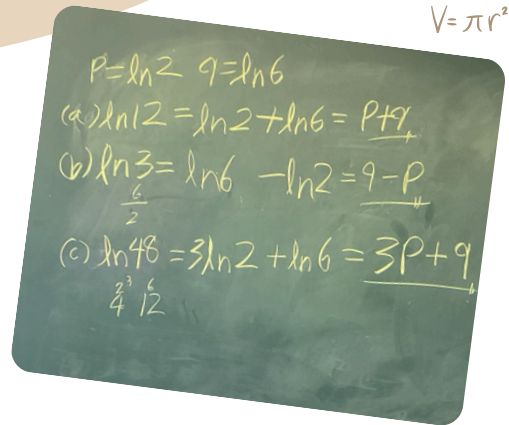 V = πr²
P=ln2 q=ln6
(a) ln12 = ln2 + ln6 = P+q
(b) ln3 = ln6 - ln2 = q-P
6/2
(c) ln48 = 3ln2 + ln6 = 3P+q
2³ 6
4 12